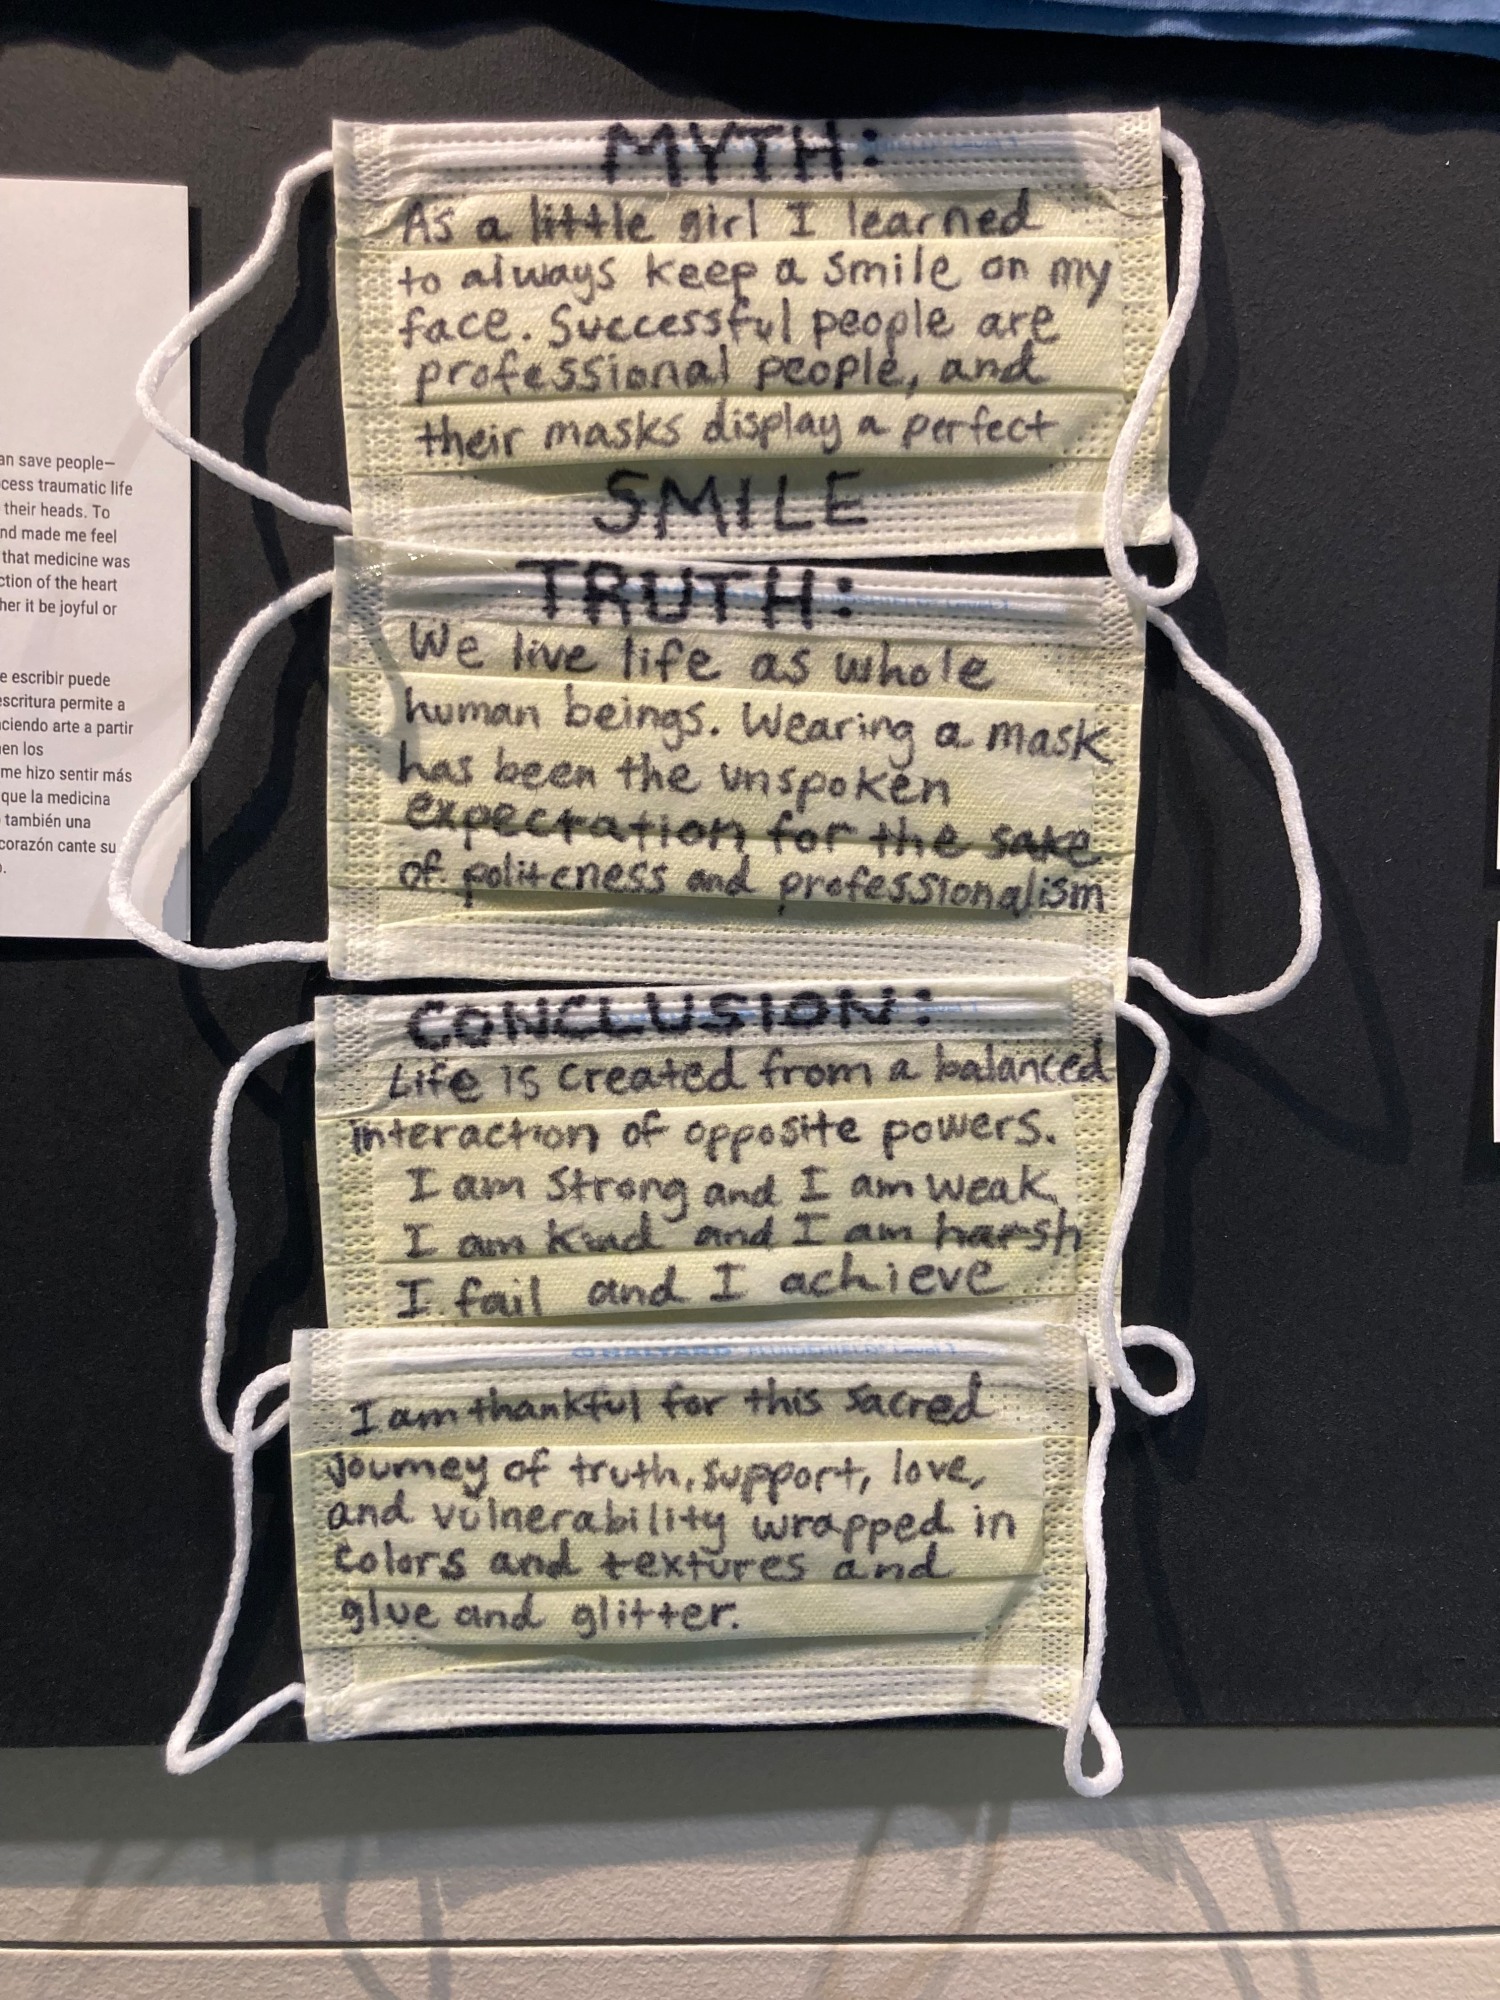 MYTH:
As a little girl I learned
to always keep a smile on my
face. Successful people are
professional people, and
their masks display a perfect
SMILE
TRUTH:
We live life as whole
human beings. Wearing a mask
has been the unspoken
expectation for the sake
of politeness and professionalism
CONCLUSION:
Life is created from a balanced
interaction of opposite powers.
I am strong and I am weak
I am kind and I am harsh
I fail and I achieve
HALYARD FLUIDSHIELD Level 1
I am thankful for this sacred
journey of truth, support, love,
and vulnerability wrapped in
colors and textures and
glue and glitter.
an save people—
cess traumatic life
their heads. To
nd made me feel
that medicine was
ction of the heart
her it be joyful or
e escribir puede
escritura permite a
ciendo arte a partir
en los
me hizo sentir más
que la medicina
también una
corazón cante su